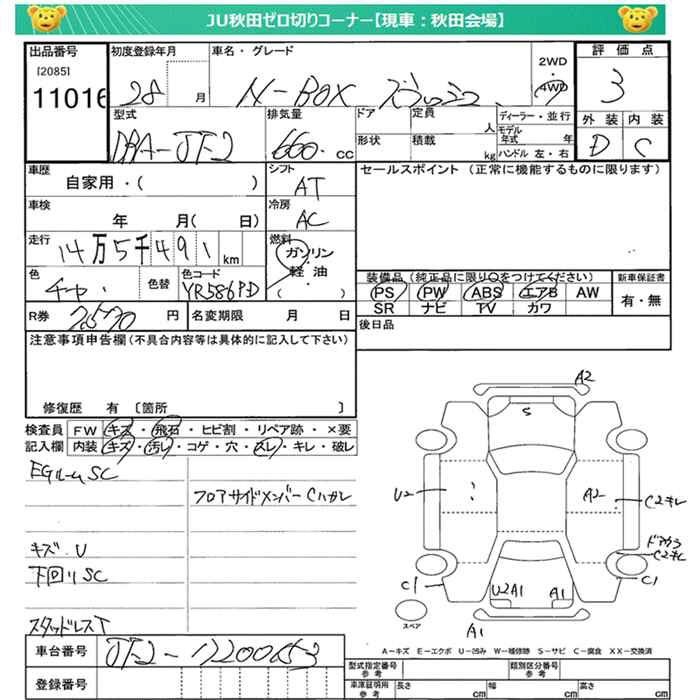 JU秋田ゼロ切りコーナー【現車：秋田会場】
出品番号
[2085]
11016
初度登録年月
28 月
車名・グレード
N-BOX
2WD
4WD
評価点
3
外装 内装
D C
型式
DBA-JF2
排気量
660. CC
ドア
形状
定員
人
積載
kg
ディーラー・並行
モデル年式 年
ハンドル 左・右
車歴
自家用・( )
シフト
AT
セールスポイント (正常に機能するものに限ります)
車検
年 月( 日)
冷房
AC
走行
14万5千491km
燃料
ガソリン
軽油
( ・ )
色
チャ.
色替
色コード
YR586PD
装備品 (純正品に限り○をつけてください)
PS PW ABS エアB AW
SR ナビ TV カワ
新車保証書
有・無
R券
円
名変期限 月 日
後日品
注意事項申告欄(不具合内容等は具体的に記入して下さい)
修復歴 有 〔箇所 〕
検査員記入欄
FW キズ・飛石・ヒビ割・リペア跡・×要
内装 キズ・汚レ・コゲ・穴・スレ・キレ・破レ
EGルームSC
フロアサイドメンバーCハガレ
キズ.U
下回りSC
スタッドレスT
A2
S
U2
A2
C2キレ
C2キレ
C1
C1
U2A1
A1
A1
スペア
A-キズ E-エクボ U-凹み W-補修跡 S-サビ C-腐食 XX-交換済
車台番号
JF2-1220053
登録番号
型式指定番号 参考
類別区分番号 参考
車庫証明用 参考
長さ cm
幅 cm
高さ cm